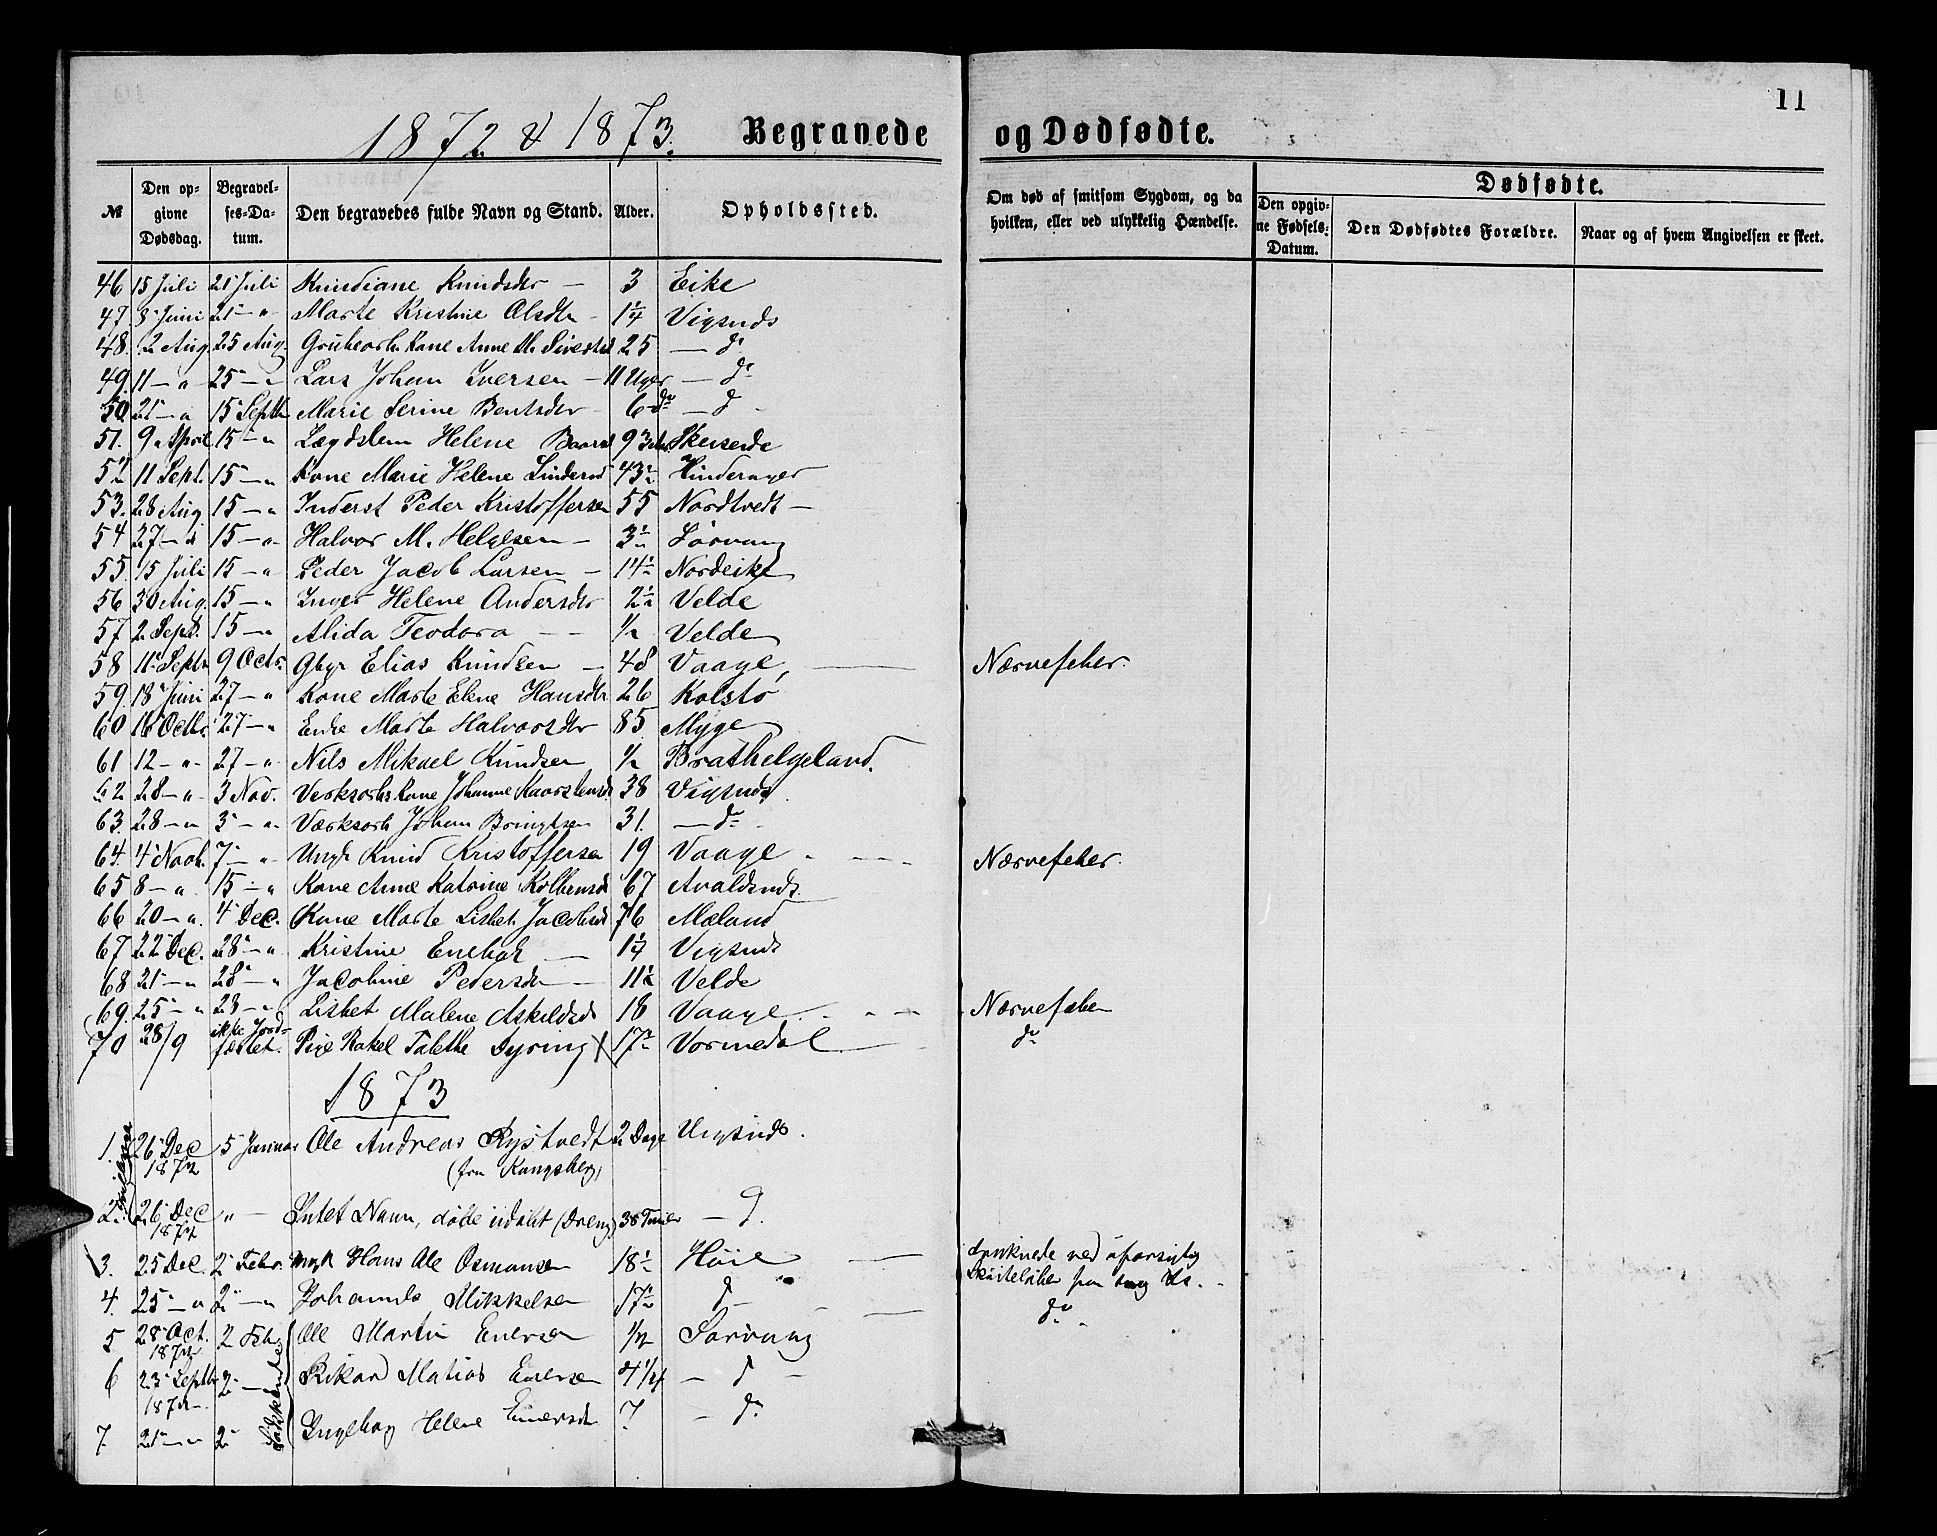 11
1872 & 1873. Begravede og Dødfødte.
№ Den opgivne Dødsdag. Begravelses-Datum. Den begravedes fulde Navn og Stand. Alder. Opholdssted. Om død af smitsom Sygdom, og da hvilken, eller ved ulykkelig Hændelse. Dødfødte. Den opgivne Fødsels-Datum. Den Dødfødtes Forældre. Naar og af hvem Angivelsen er skeet.
46 15 Juli 21 Juli Knudiane Knudsdtr — 3 Eike
47. 3 Juni 21 — " Marte Kristine Olsdtr - 1¼ Vigsnds
48. 2 Aug. 25 Aug. Grubearb. Kone Anne M. 25 — do
49. 11 — " 25 — " Lars Johan Iversen — 11 Uger — do
50. 21 — " 15 Septbr Marie Serine Bentsdtr 6 do — do
51. 9 April 15 — " Lægdslem Helene 93
52 11 Sept. 15 — " Kone Marie Helene 43½ Hinderager
53. 28 Aug 15 — " Inderst Peder Kristoffersen 55 Nordtvedt —
54 27 — " 15 — " Halvor M. Helgesen — 3½ Sørvaag
55. 15 Juli 15 — " Peder Jacob Larsen — 14½ Nordeike
56 30 Aug. 15 — " Inger Helene Andersdtr 2½ Velde
57 2 Sept. 15 — " Alida Teodora — ½ Velde
58 11 Septbr 9 Octbr. Elias Knudsen — 48 Vaage, — Nærvefeber.
59. 18 Juni 27 — " Kone Marte Elene Hansdtr 26 Kolstø
60 16 Octbr. 27 — " Enke Marte Halvorsdtr 85. Myge
61 12 — " 27 — " Nils Mikael Knudsen ½ Brathelgeland.
62 28 — " 3 Nov. Verksarb. Kone Johanne 38 Vigsnds
63. 28 — " 3 — " Værksarb. Johan 31. — do
64. 4 Novb. 7 — " Ungk. Knud Kristoffersen 19 Vaage — Nærvefeber.
65 8 — " 15 — " Kone Anne Katrine 67 Avaldsnds.
66 20 — " 4 Dec. Kone Marte Lisbet Jacobsd 76 Mæland
67 22 Dec. 28 — " Kristine — 1¼ Vigsnds
68 21 — " 28 — " Jacobine Pedersdtr — 11½ Velde
69. 25 — " 28 — " Lisbet Malene Askildsd 18 Vaage — Nærvefeber
70 28/9 ikke Jordfæstet. Pige Rakel Talette Dyring 17½ Vormedal — do
1873
1. 26 Dec 1872 5 Januar Ole Andreas Rystvedt 2 Dage Vigsnds.
(fra Kongsberg)
2. 26 Dec 1872 " — Intet Navn, døbt (Dreng) 38 Timer — do.
3. 25 Dec. 2 Febr. Ungk Hans Ole Osmonsen 18½ Høie — druknede ved uforsigtig Skøiteløben paa Is.
4. 25 — " 2 — " Johannes Mikkelsen 17½ do — do
5 28 Oct. 1872 2 Feb. Ole Martin Enersen ½ Sørvaag
6 23 Septbr 1872. 2 — Rikard Matias Enersen 4¼ — do —
7. 21 — " 2 Ingeborg Helene Enersdtr 7. — do.